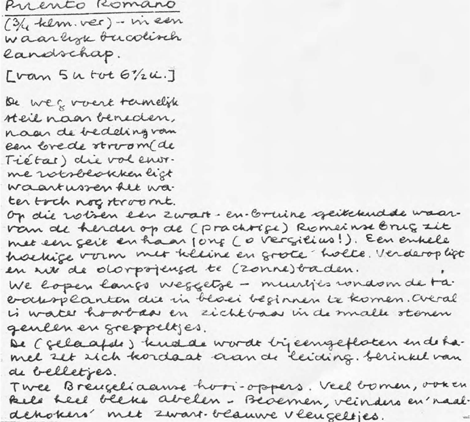 Puento Romano
(3/4 klm. ver) – in een
waarlijk bucolisch
landschap.
[van 5 u tot 6 1/2 u.]
De weg voert tamelijk
steil naar beneden,
naar de bedding van
een brede stroom (de
Tiétar) die vol enor-
me rotsblokken ligt
waartussen het wa-
ter toch nog stroomt.
Op die rotsen een zwart-en-bruine geitekudde waar-
van de herder op de (prachtige) Romeinse brug zit
met een geit en haar jong (o Vergilius!). Een enkele
hoekige vorm met kleine en grote holte. Verderop ligt
en zit de dorpsjeugd te (zonne)baden.
We lopen langs weggetje – muurtjes rondom de ta-
baksplanten die in bloei beginnen te komen. Overal
is water hoorbaar en zichtbaar in de smalle stenen
geulen en greppeltjes.
De (gelaafde) kudde wordt bijeengefloten en de ha-
mel zet zich kordaat aan de leiding. Gerinkel van
de belletjes.
Twee Breugeliaanse hooi-oppers. Veel bomen, ook en-
kele heel bleke abelen – Bloemen, vlinders en 'naal-
dekokers' met zwart-blauwe vleugeltjes.